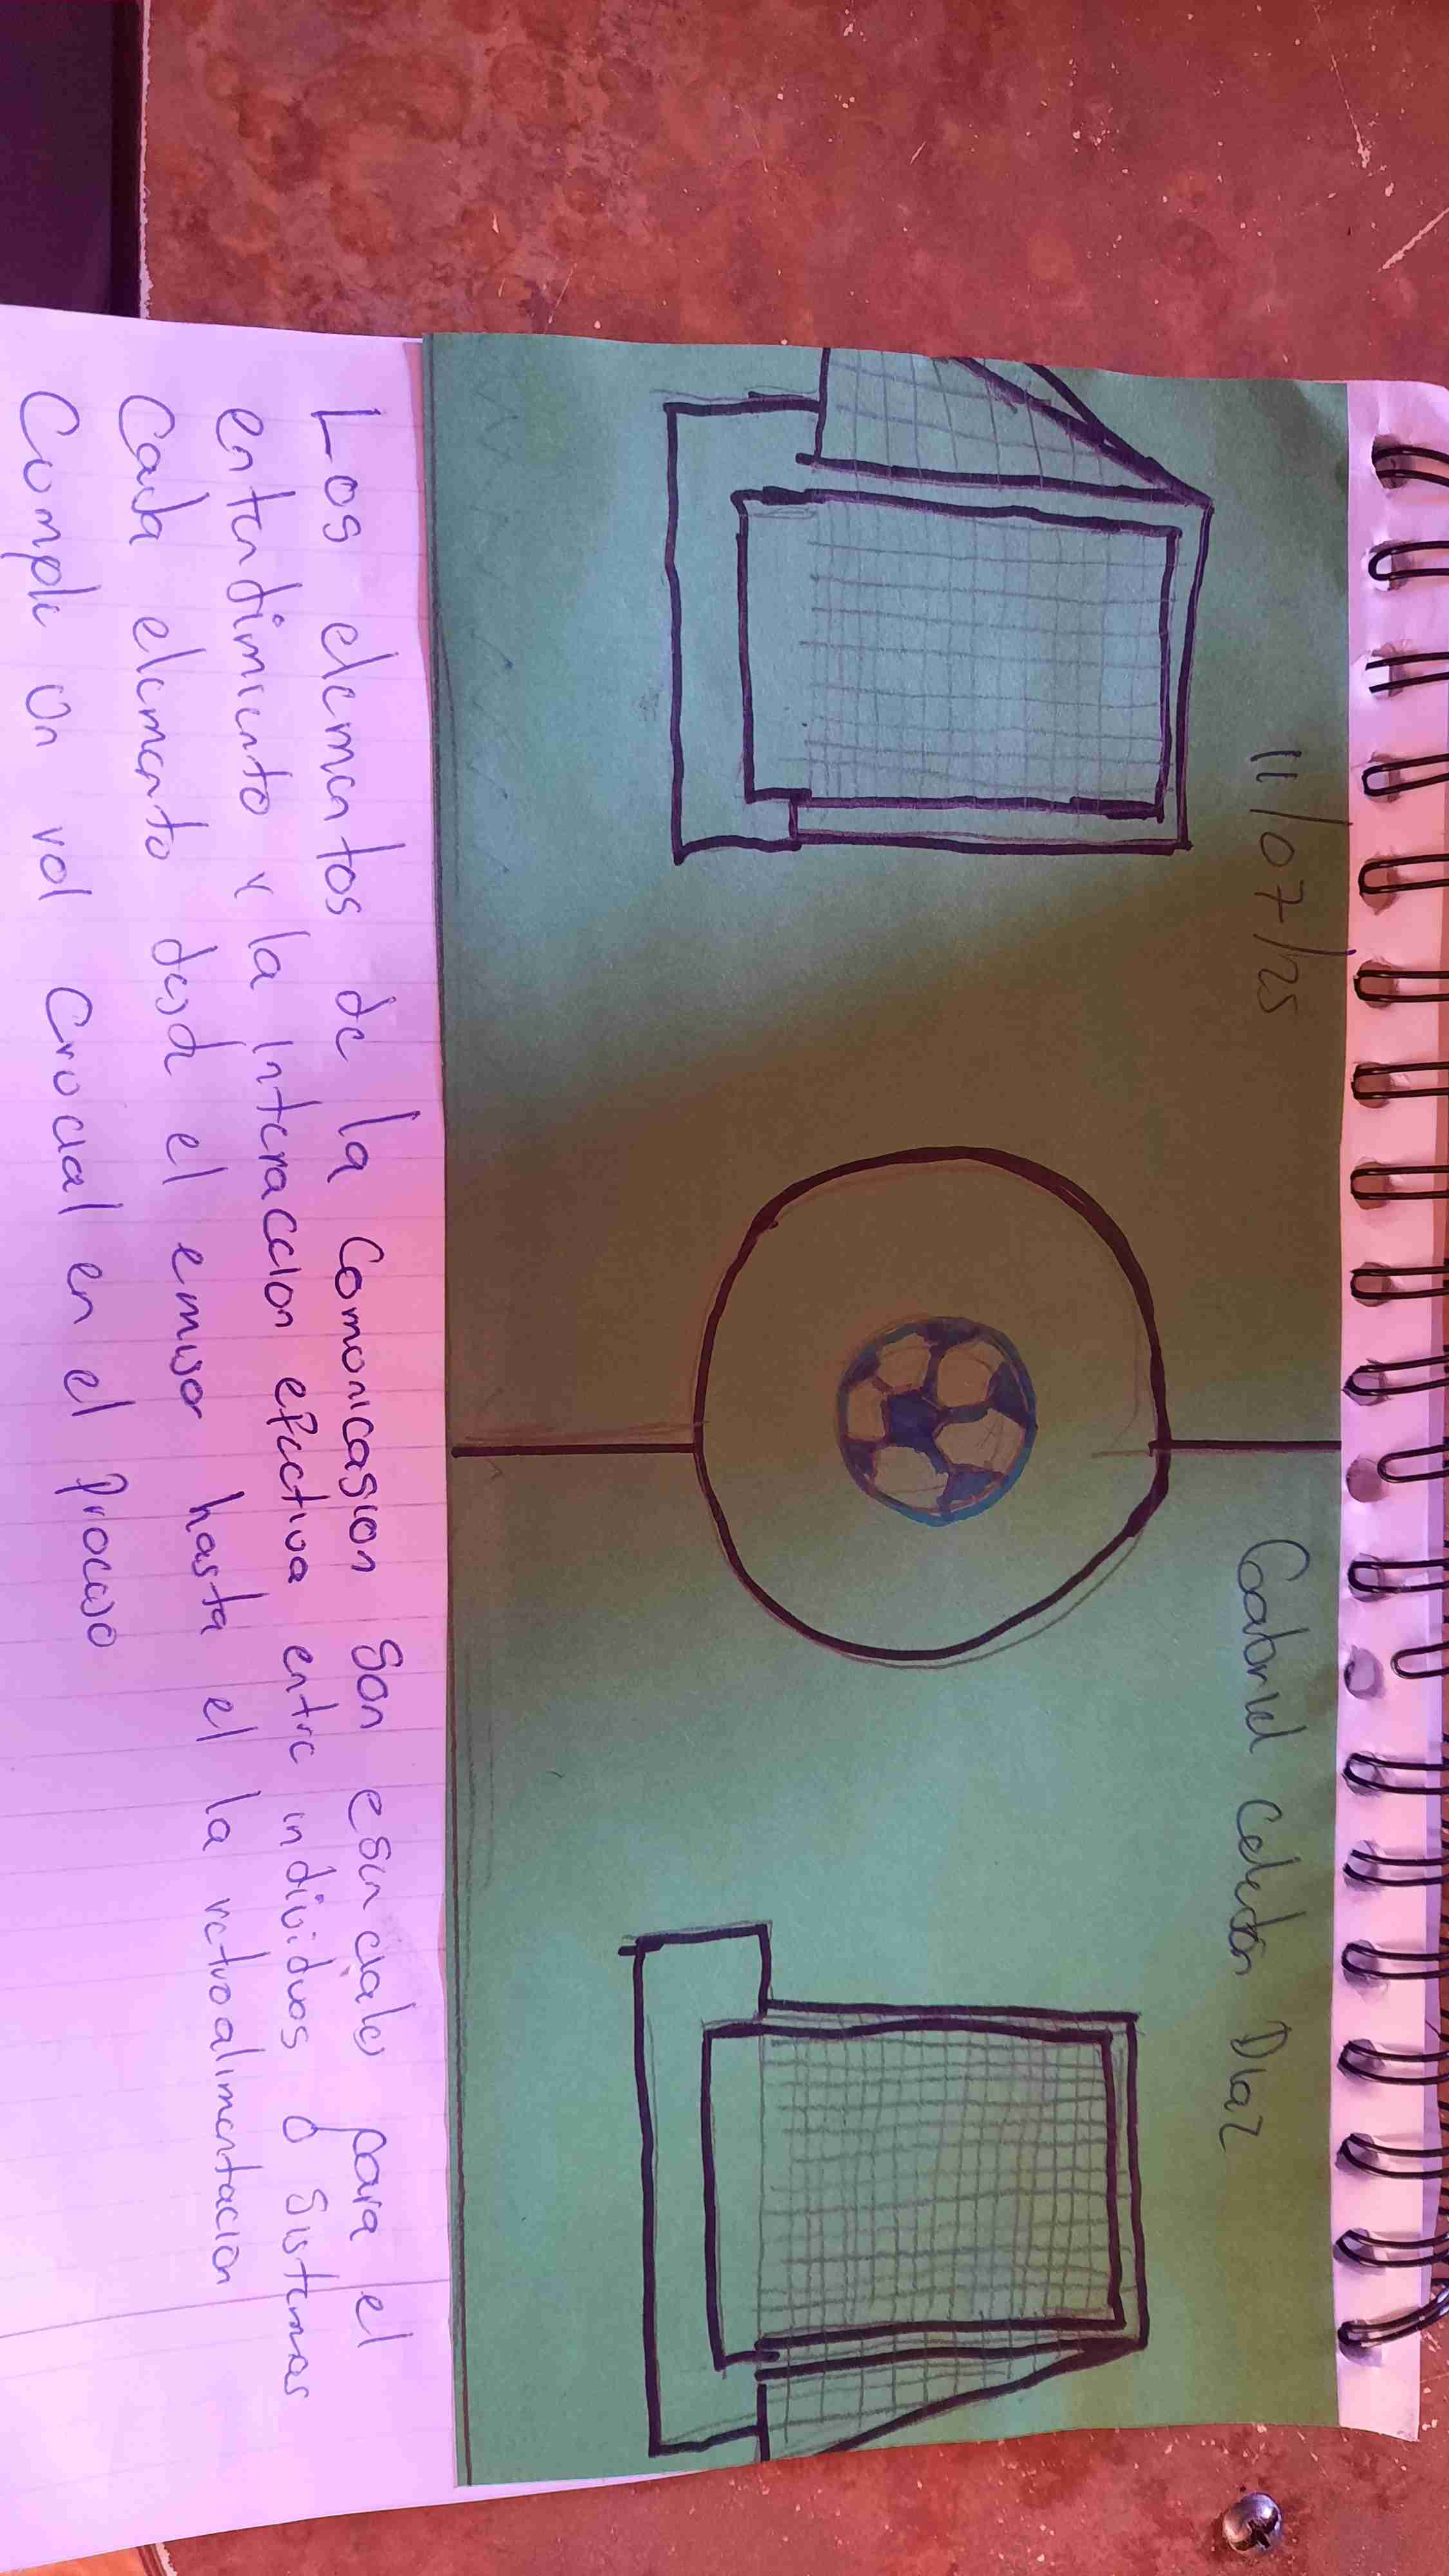 11/07/25
Gabriel Celedon Diaz
Los elementos de la comonicasion son esenciales para el
entendimiento y la interaccion efectiva entre individuos o sistemas
Cada elemento desde el emisor hasta el la retroalimentacion
Cumple un rol Crucial en el proceso